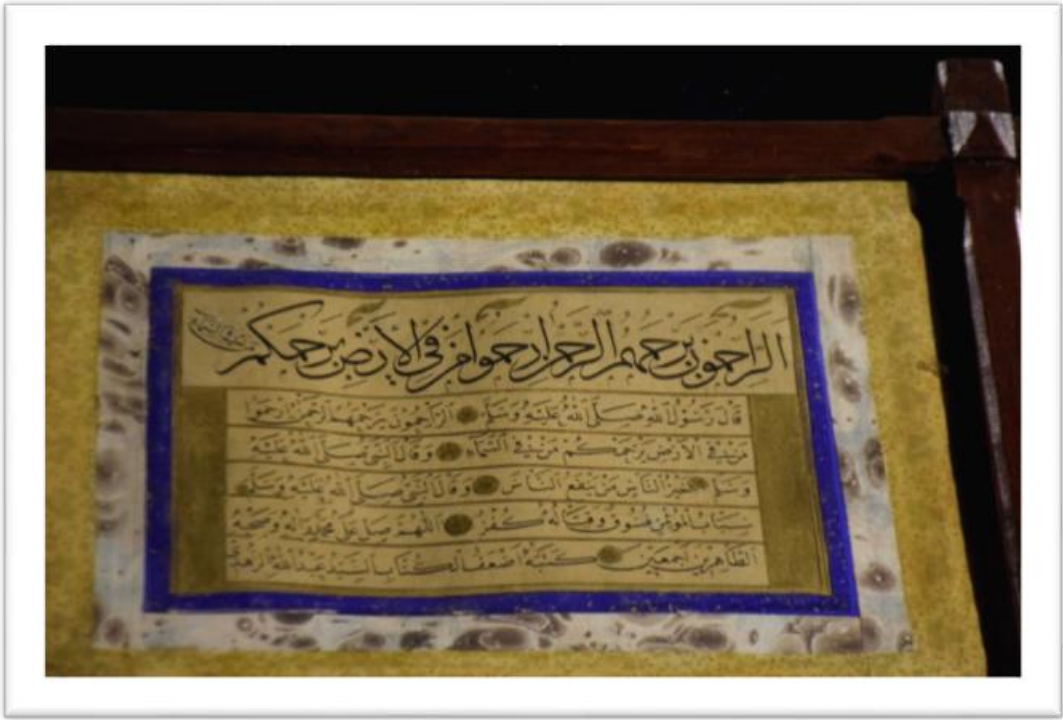 الراحمون يرحمهم الرحمن ارحموا من في الارض يرحمكم من في السماء
قال رسول الله صلى الله عليه وسلم الراحمون يرحمهم الرحمن ارحموا
من في الارض يرحمكم من في السماء وقال النبي صلى الله عليه
وسلم خير الناس من ينفع الناس وقال النبي صلى الله عليه وسلم
سباب المؤمن فسوق وقتاله كفر اللهم صل على محمد واله وصحبه
الطاهرين اجمعين كتبه اضعف الكتاب السيد عبدالله